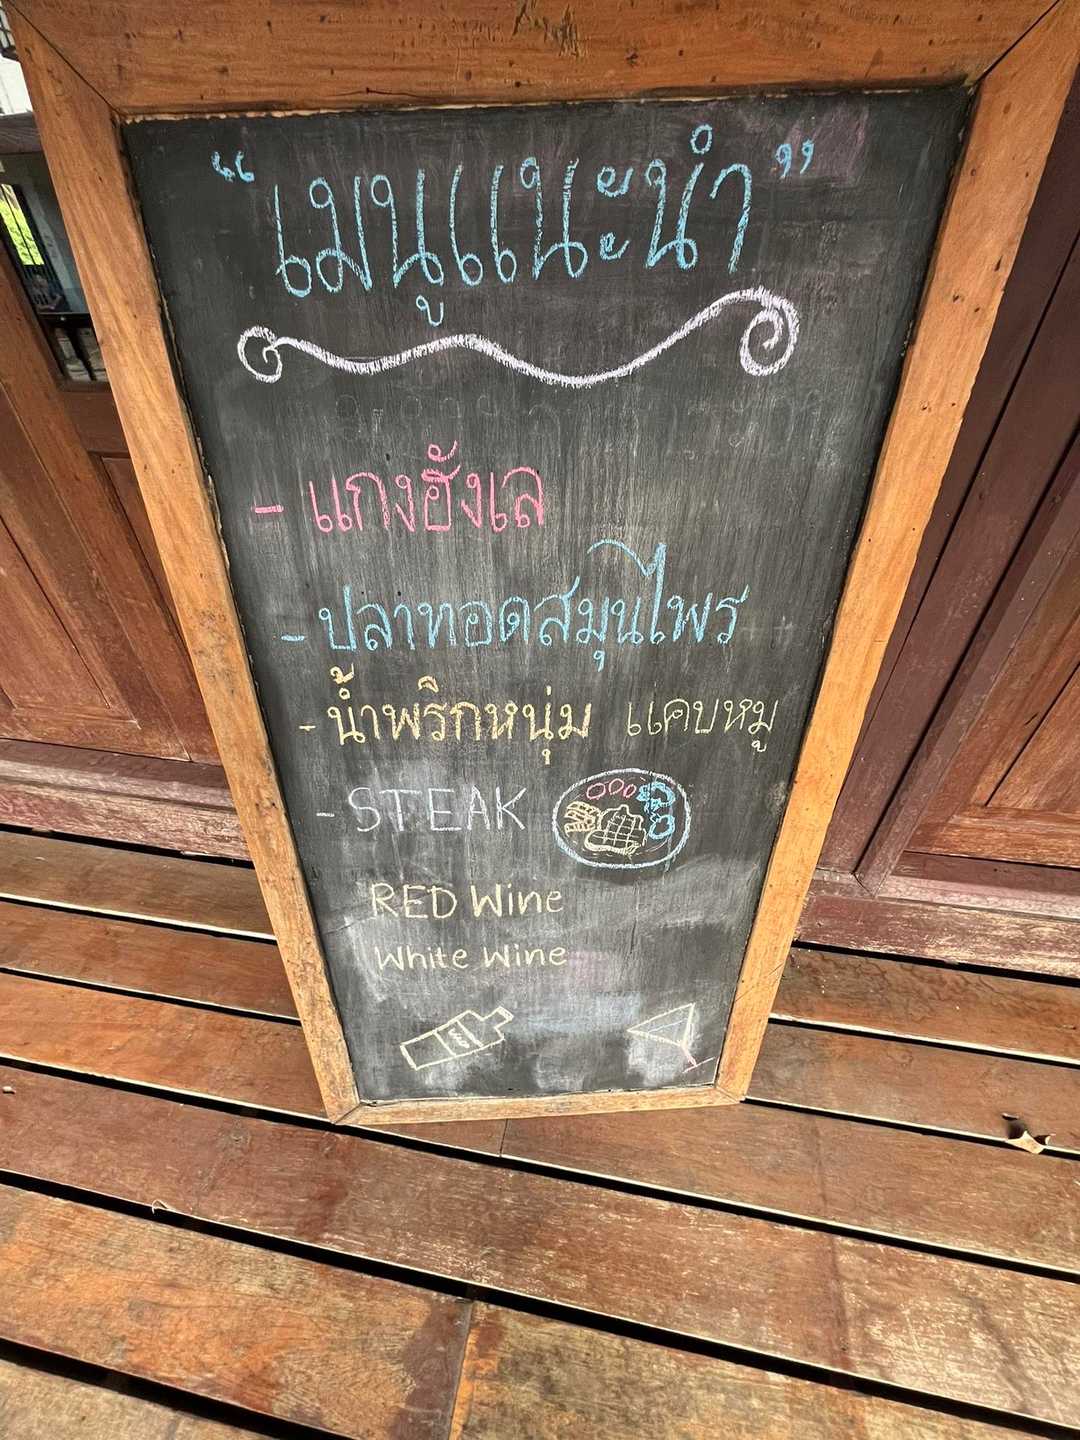 “เมนูแนะนำ”
- แกงฮังเล
- ปลาทอดสมุนไพร
- น้ำพริกหนุ่ม แคบหมู
- STEAK
RED Wine
White Wine